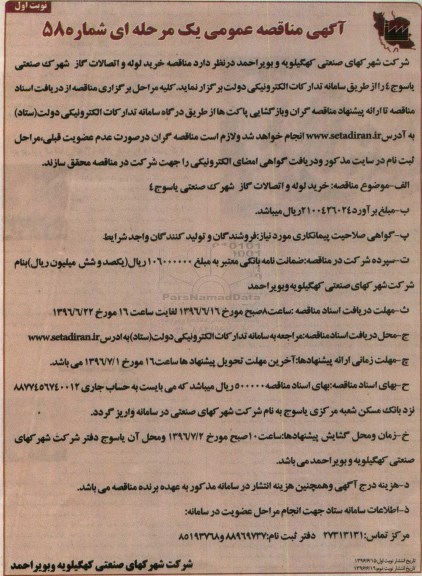 نوبت اول
آگهی مناقصه عمومی یک مرحله ای شماره ۵۸
شرکت شهرکهای صنعتی کهگیلویه و بویراحمد درنظر دارد مناقصه خرید لوله و اتصالات گاز شهرک صنعتی
یاسوج۴ را از طریق سامانه تدارکات الکترونیکی دولت برگزار نماید.کلیه مراحل برگزاری مناقصه از دریافت اسناد
مناقصه تا ارائه پیشنهاد مناقصه گران وبازگشایی پاکت ها از طریق درگاه سامانه تدارکات الکترونیکی دولت(ستاد)
به آدرس www.setadiran.ir انجام خواهد شد ولازم است مناقصه گران درصورت عدم عضویت قبلی،مراحل
ثبت نام در سایت مذکور ودریافت گواهی امضای الکترونیکی را جهت شرکت در مناقصه محقق سازند.
الف-موضوع مناقصه: خرید لوله و اتصالات گاز شهرک صنعتی یاسوج۴
ب-مبلغ برآورد۲۱۰۰۴۳۶۰۲۴ریال میباشد.
پ-گواهی صلاحیت پیمانکاری مورد نیاز:فروشندگان و تولید کنندگان واجد شرایط
ت-سپرده شرکت در مناقصه:ضمانت نامه بانکی معتبر به مبلغ ۱۰۶۰۰۰۰۰۰ ریال(یکصد و شش میلیون ریال)بنام
شرکت شهرکهای صنعتی کهگیلویه وبویراحمد
ث-مهلت دریافت اسناد مناقصه :ساعت۸صبح مورخ ۱۳۹۶/۶/۱۶ لغایت ساعت ۱۶ مورخ ۱۳۹۶/۶/۲۲
ج-محل دریافت اسناد مناقصه:مراجعه به سامانه تدارکات الکترونیکی دولت(ستاد)به ادرس www.setadiran.ir
چ-مهلت زمانی ارائه پیشنهادها:آخرین مهلت تحویل پیشنهاد ها ساعت۱۶ مورخ ۱۳۹۶/۷/۱ می باشد.
ح-بهای اسناد مناقصه:بهای اسناد مناقصه۵۰۰۰۰۰ریال میباشد که می بایست به حساب جاری ۸۸۷۷۴۵۶۷۴۰۰۱۲
نزد بانک مسکن شعبه مرکزی یاسوج به نام شرکت شهرکهای صنعتی در سامانه واریز گردد.
خ-زمان ومحل گشایش پیشنهادها:ساعت۱۰صبح مورخ ۱۳۹۶/۷/۲ ومحل آن یاسوج دفتر شرکت شهرکهای
صنعتی کهگیلویه و بویراحمد می باشد.
د-هزینه درج آگهی وهمچنین هزینه انتشار در سامانه مذکور به عهده برنده مناقصه می باشد.
ذ-اطلاعات سامانه ستاد جهت انجام مراحل عضویت در سامانه:
مرکز تماس:۲۷۳۱۳۱۳۱ دفتر ثبت نام:۸۸۹۶۹۷۳۷و۸۵۱۹۳۷۶۸
تاریخ انتشار نوبت اول:۱۳۹۶/۶/۱۵
شرکت شهرکهای صنعتی کهگیلویه وبویراحمد
تاریخ انتشار نوبت دوم:۱۳۹۶/۶/۱۹
ParsNamadData